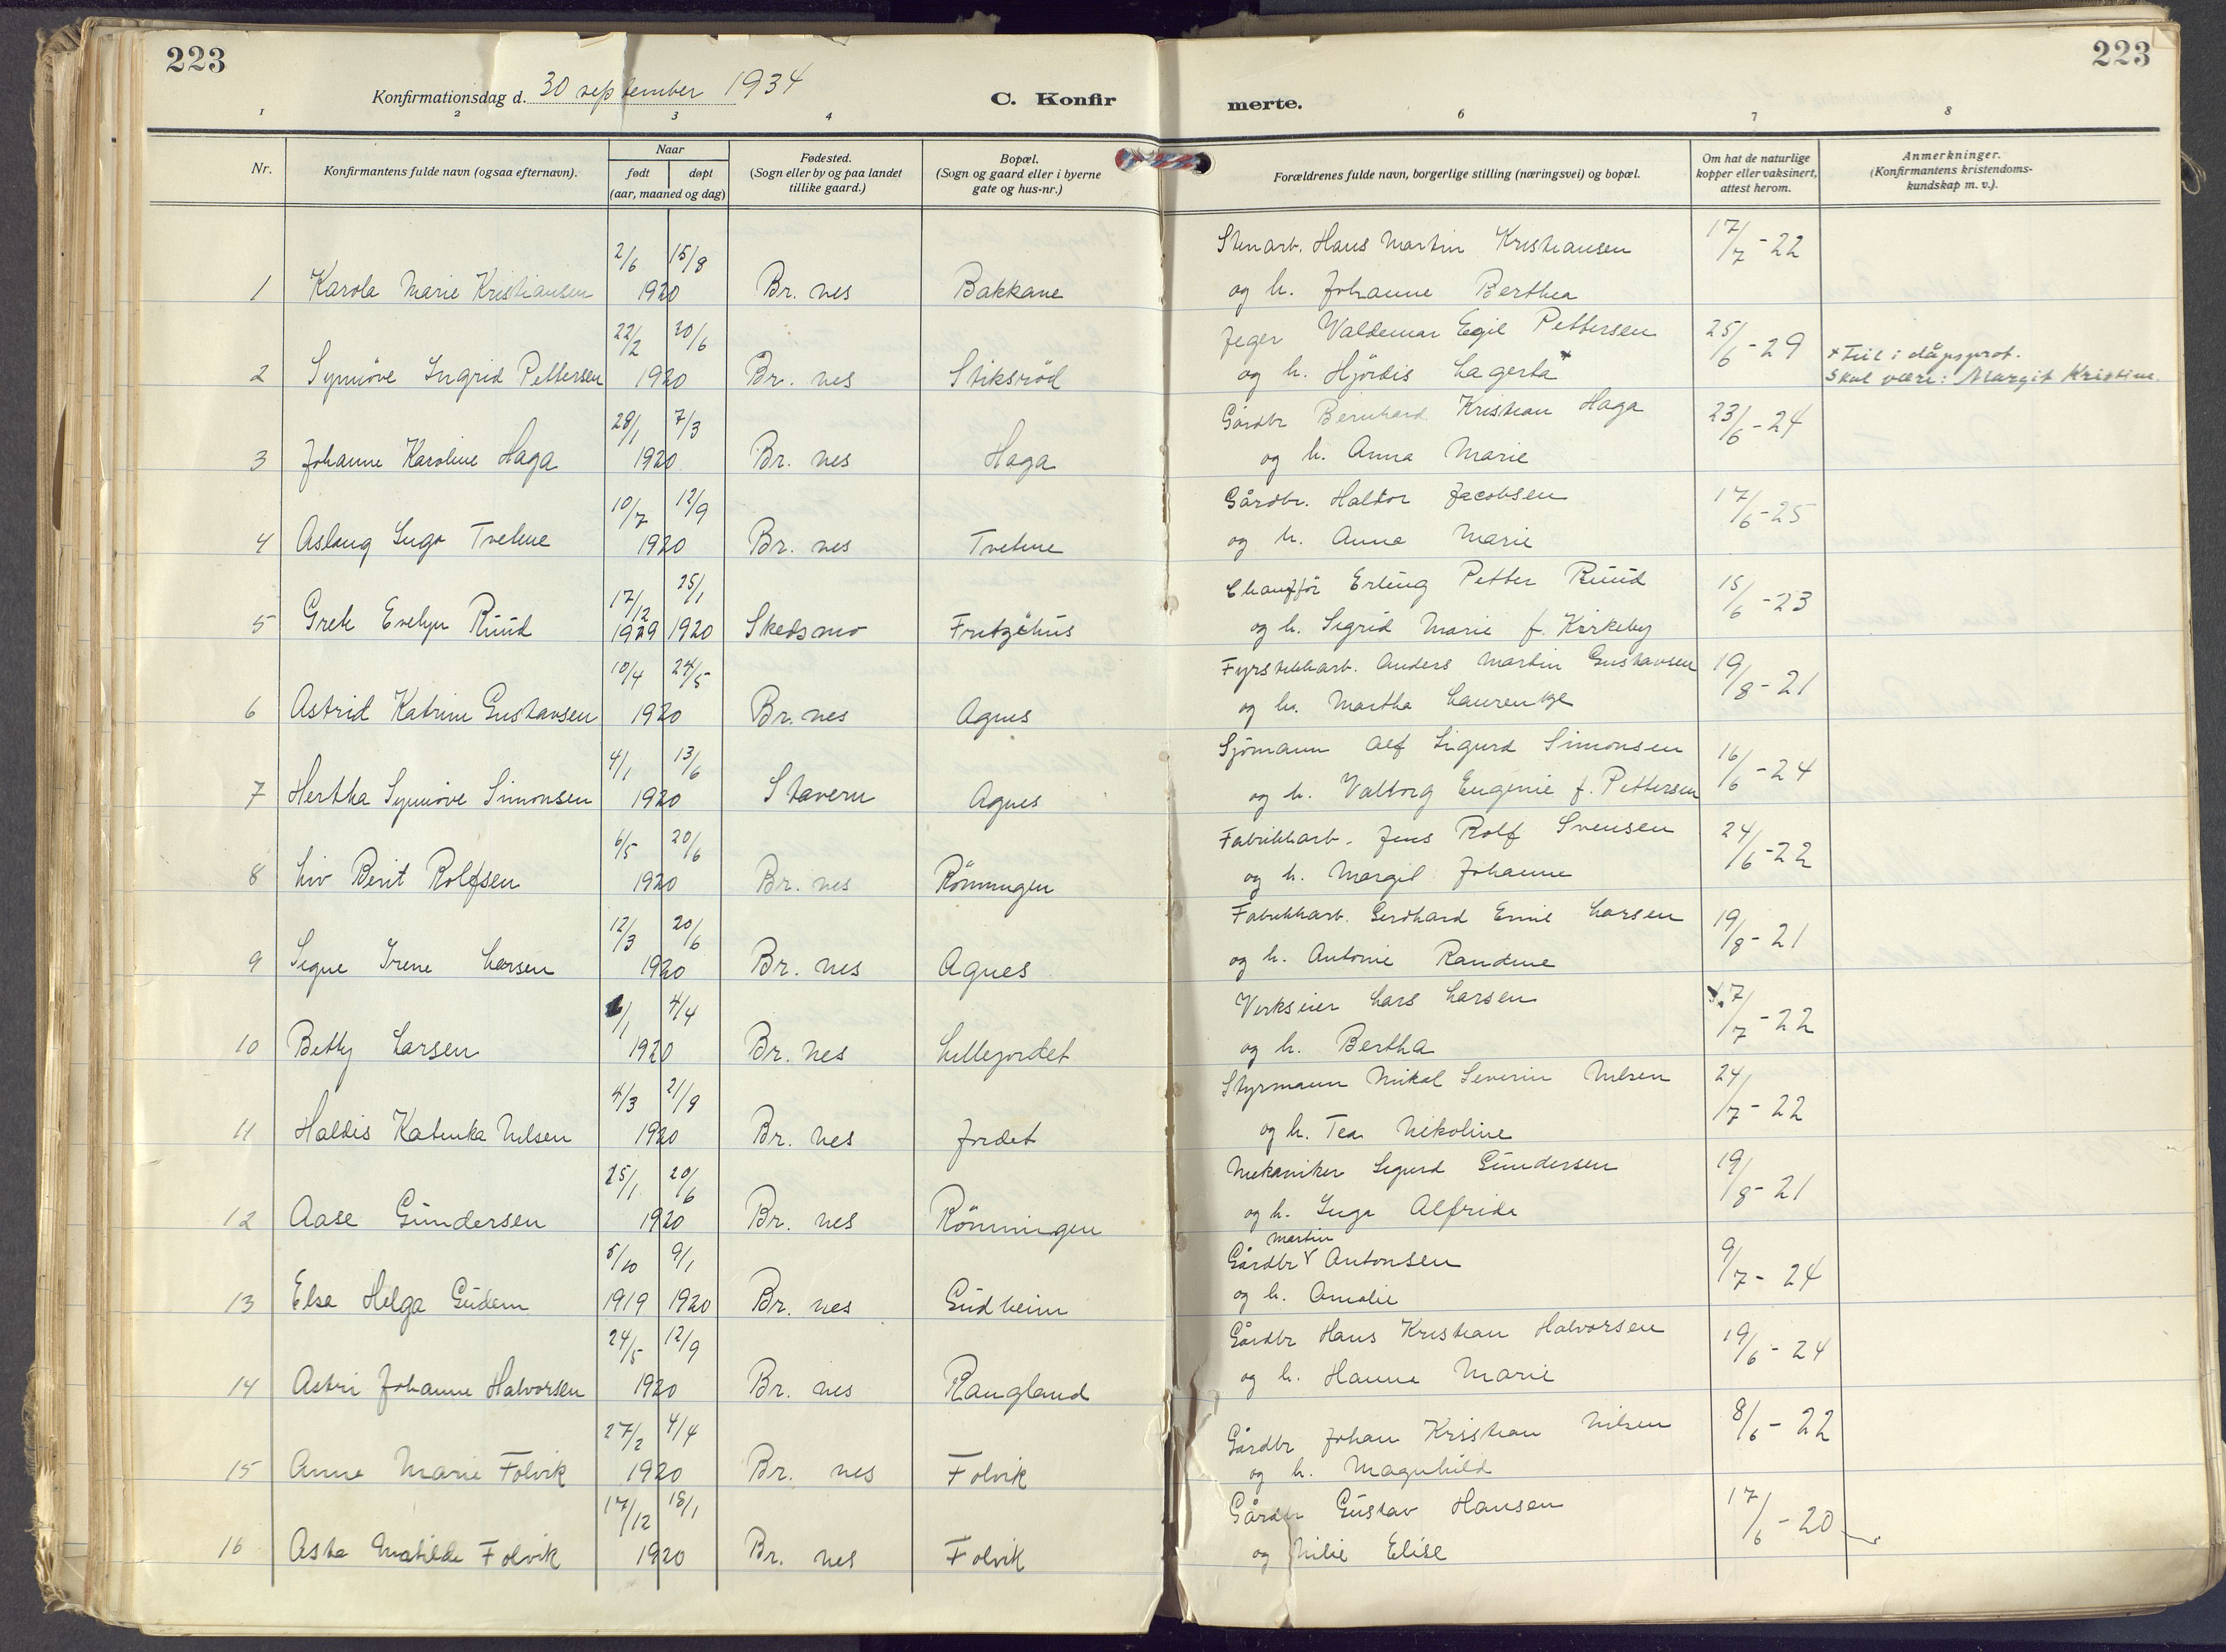 223
223
Konfirmationsdag d. 30 september 1934
C. Konfir merte.
1 2 3 4 6 7 8
Nr.
Konfirmantens fulde navn (ogsaa efternavn).
Naar
født døpt
(aar, maaned og dag)
Fødested.
(Sogn eller by og paa landet
tillike gaard.)
Bopæl.
(Sogn og gaard eller i byerne
gate og hus-nr.)
Forældrenes fulde navn, borgerlige stilling (næringsvei) og bopæl.
Om hat de naturlige
kopper eller vaksinert,
attest herom.
Anmerkninger.
(Konfirmantens kristendoms-
kundskap m. v.).
2/6 15/8 Stenarb. Hans Martin Kristiansen 17/7-22
1 Karola Marie Kristiansen 1920 Br. nes Bakkane og h. Johanne Berthea
22/2 20/6 Jeger Valdemar Egil Pettersen 25/6-29
x Feil i dåpsprot.
2 Synnöve Ingrid Pettersen 1920 Br. nes Stiksröd og h. Hjördis Lagerta x
Skal være: Margit Kristine.
28/1 7/3 Gårdbr Bernhard Kristian Haga 23/6-24
3 Johanne Karoline Haga 1920 Br. nes Haga og h. Anna Marie
10/7 12/9 Gårdbr. Haldor Jacobsen 17/6-25
4 Aslaug Inga Tvetene 1920 Br. nes Tvetene og h. Anna Marie
17/12 25/1 Chauffør Erling Petter Ruud 15/6-23
5 Grete Evelyn Ruud 1929 1920 Skedsmo Fritzöhus og h. Sigrid Marie f. Kirkeby
10/4 24/5 Fyrstikkarb. Anders Martin Gustavsen 19/8-21
6 Astrid Katrine Gustavsen 1920 Br. nes Agnes og h. Martha Laurentze
4/1 13/6 Sjömann Alf Sigurd Simonsen 16/6-24
7 Hertha Synnöve Simonsen 1920 Stavern Agnes og h. Valborg Eugenie f. Pettersen
6/5 20/6 Fabrikkarb. Jens Rolf Svensen 24/6-22
8 Liv Berit Rolfsen 1920 Br. nes Rönningen og h. Margit Johanne
12/3 20/6 Fabrikkarb. Gerdhard Emil Larsen 19/8-21
9 Signe Irene Larsen 1920 Br. nes Agnes og h. Antonie Randine
6/1 4/4 Verkseier Lars Larsen 17/7-22
10 Betty Larsen 1920 Br. nes Lillejordet og h. Bertha
4/3 21/9 Styrmann Mikal Severin Nilsen 24/7-22
11 Haldis Katinka Nilsen 1920 Br. nes Jordet og h. Tea Nikoline
25/1 20/6 Mekaniker Sigurd Gundersen 19/8-21
12 Aase Gundersen 1920 Br. nes Rönningen og h. Inga Alfrida
5/10 9/1 Gårdbr Martin Antonsen 9/7-24
13 Else Helga Gudem 1919 1920 Br. nes Gudheim og h. Amalie
24/5 12/9 Gårdbr Hans Kristian Halvorsen 19/6-24
14 Astri Johanne Halvorsen 1920 Br. nes Raugland og h. Hanna Marie
27/2 4/4 Gårdbr Johan Kristian Nilsen 8/6-22
15 Anne Marie Folvik 1920 Br. nes Folvik og h. Magnhild
17/12 18/1 Gårdbr Gustav Hansen 17/6-20
16 Asta Matilde Folvik 1920 Br. nes Folvik og Milie Elise